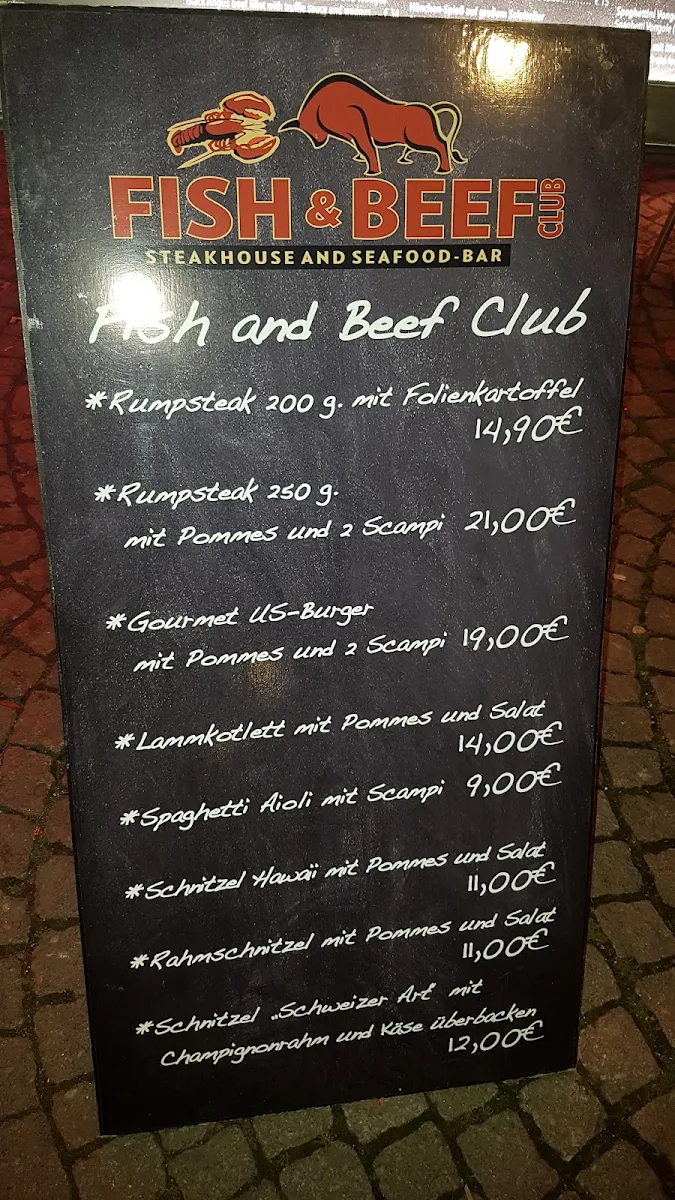 € 15
FISH & BEEF CLUB
STEAKHOUSE AND SEAFOOD-BAR
Fish and Beef Club
*Rumpsteak 200 g. mit Folienkartoffel
14,90€
*Rumpsteak 250 g.
mit Pommes und 2 Scampi 21,00€
*Gourmet US-Burger
mit Pommes und 2 Scampi 19,00€
*Lammkotlett mit Pommes und Salat
14,00€
*Spaghetti Aioli mit Scampi 9,00€
*Schnitzel Hawaii mit Pommes und Salat
11,00€
*Rahmschnitzel mit Pommes und Salat
11,00€
*Schnitzel „Schweizer Art" mit
Champignonrahm und Käse überbacken
12,00€